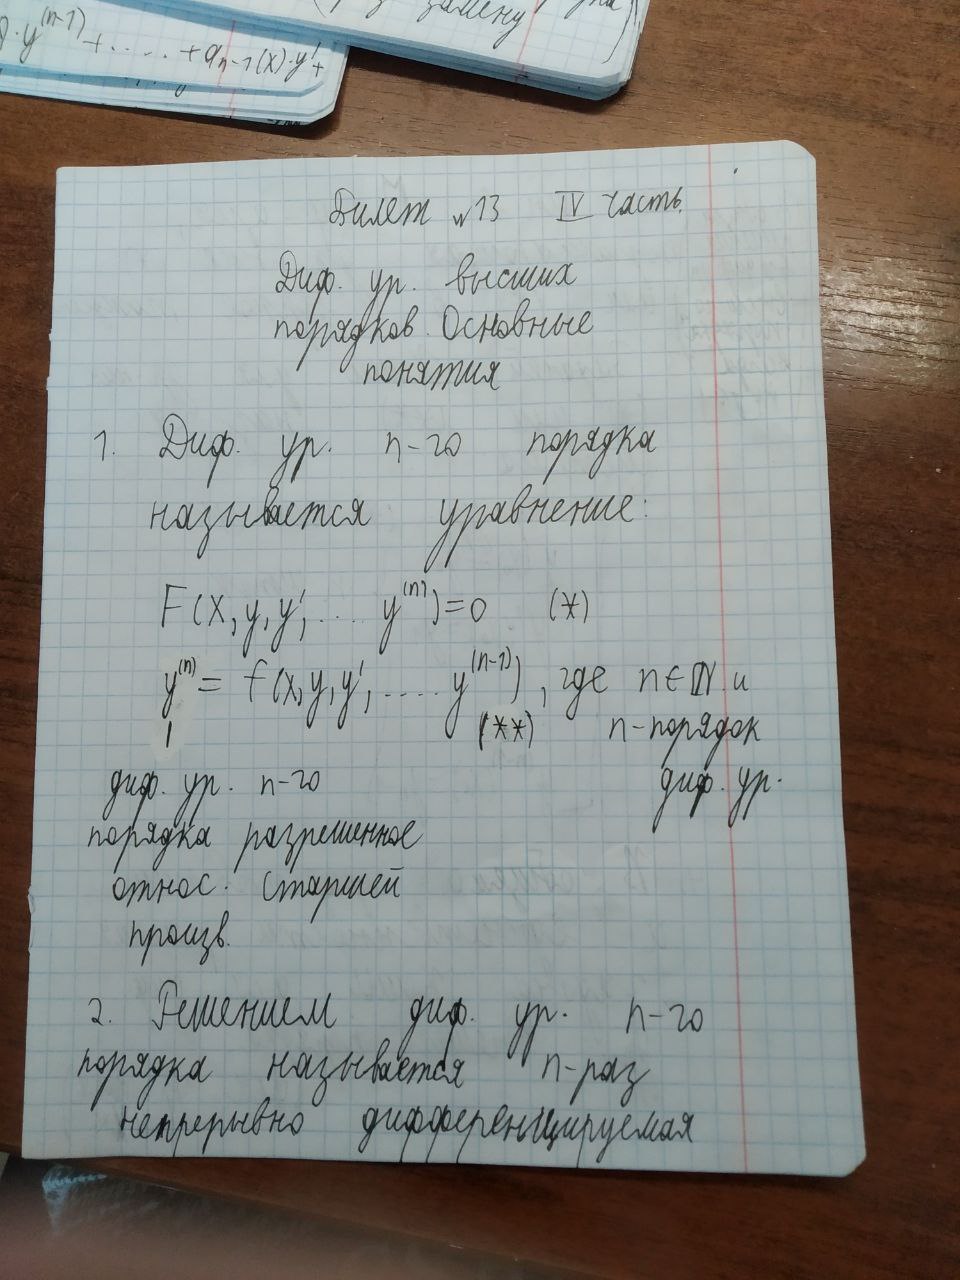 y⁽ⁿ⁻¹⁾ + .... + aₙ₋₁(x)·y' +
замену
Билет №13 IV часть.
Диф. ур. высших
порядков. Основные
понятия
1. Диф. ур. n-го порядка
называется уравнение:
F(x, y, y', .... y⁽ⁿ⁾) = 0 (*)
y⁽ⁿ⁾ = f(x, y, y', .... y⁽ⁿ⁻¹⁾), где n ∈ ℕ и
(**) n - порядок
диф. ур. n-го диф. ур.
порядка разрешенное
относ. старшей
произв.
2. Решением диф. ур. n-го
порядка называется n-раз
непрерывно дифференцируемая